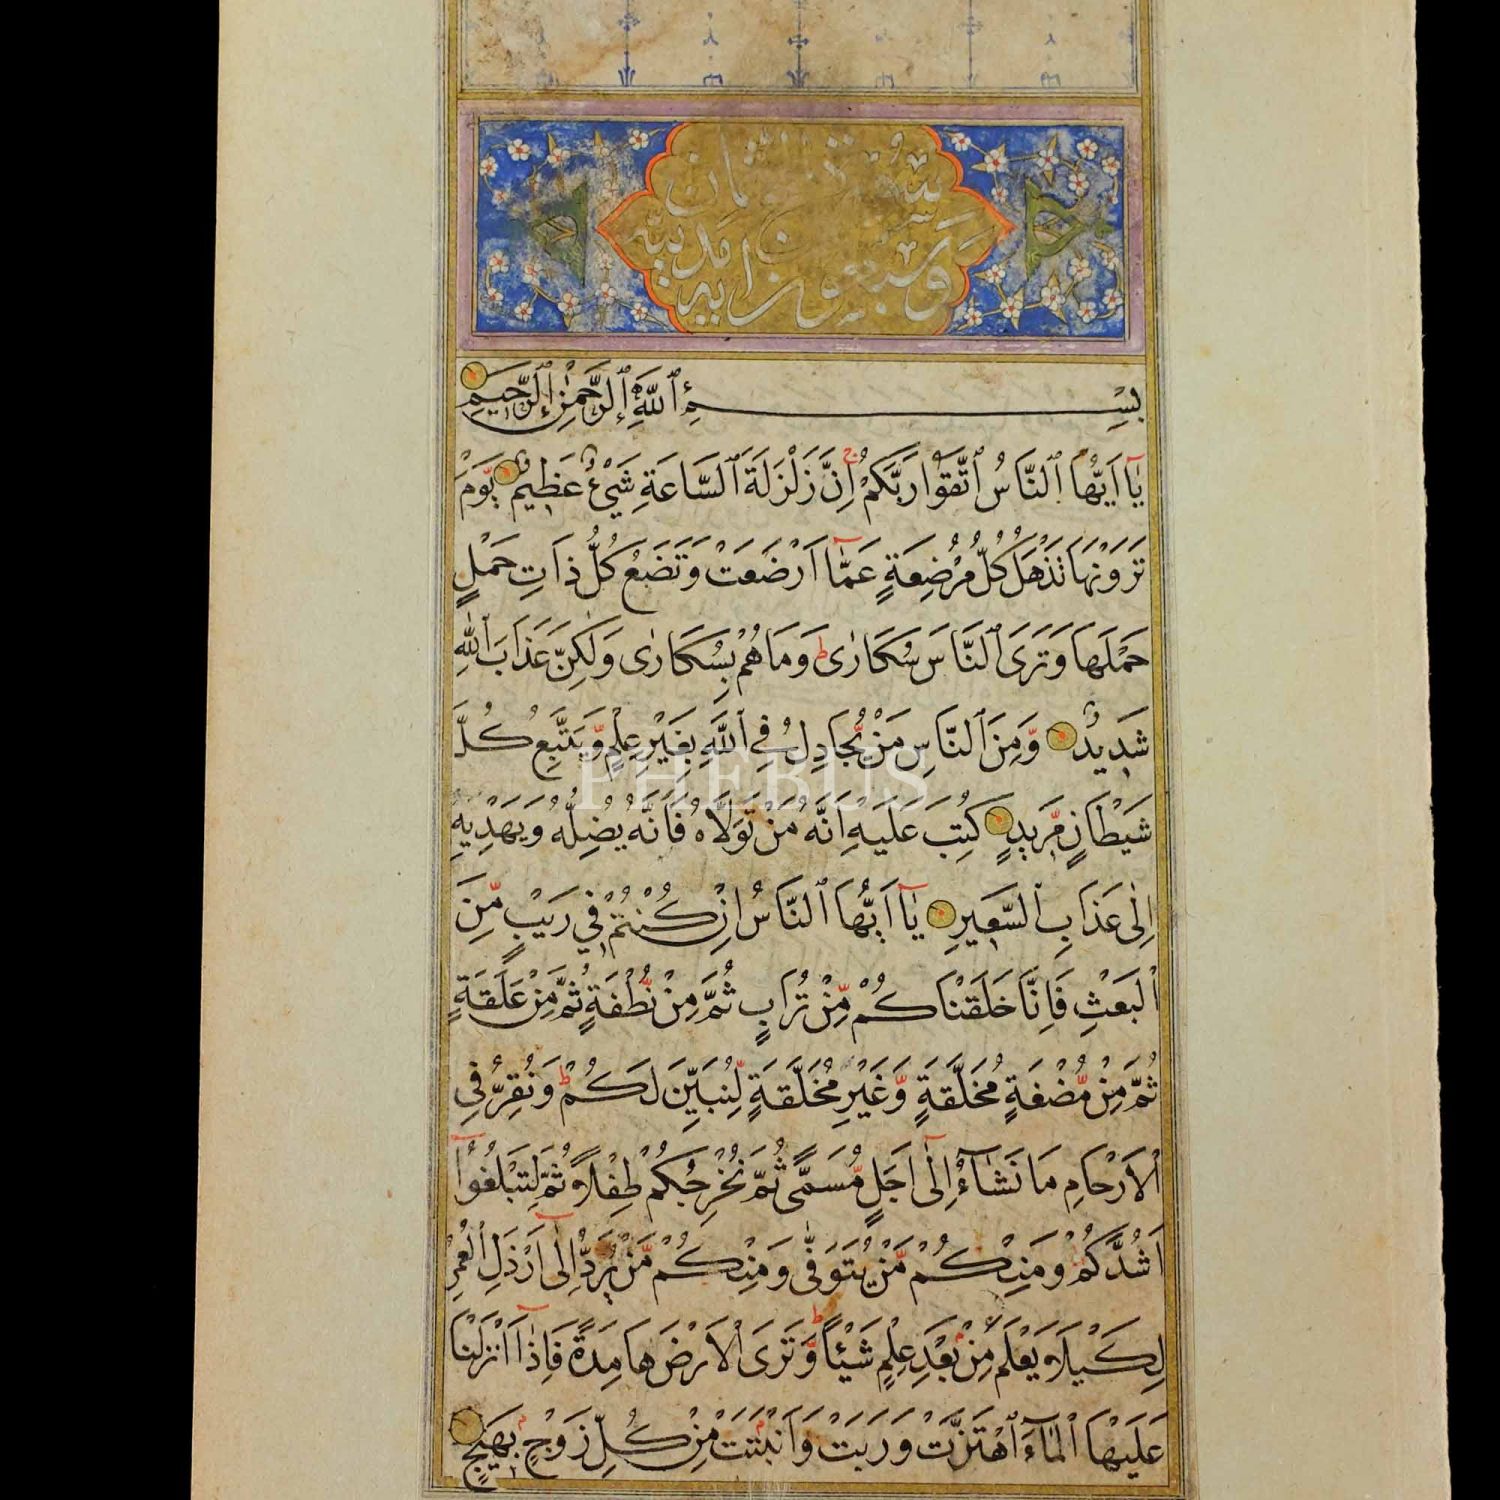 سورة الحج ثمان
وسبعون آية مدنية
بِسْمِ ٱللَّهِ ٱلرَّحْمٰنِ ٱلرَّحِيمِ
يَآ اَيُّهَا ٱلنَّاسُ ٱتَّقُوا رَبَّكُمْ ج اِنَّ زَلْزَلَةَ ٱلسَّاعَةِ شَيْءٌ عَظِيمٌ يَوْمَ
تَرَوْنَهَا تَذْهَلُ كُلُّ مُرْضِعَةٍ عَمَّآ اَرْضَعَتْ وَتَضَعُ كُلُّ ذَاتِ حَمْلٍ
حَمْلَهَا وَتَرَى ٱلنَّاسَ سُكَارٰى ط وَمَا هُمْ بِسُكَارٰى وَلٰكِنَّ عَذَابَ ٱللَّهِ
شَدِيدٌ وَمِنَ ٱلنَّاسِ مَنْ يُّجَادِلُ فِي ٱللَّهِ بِغَيْرِ عِلْمٍ وَّيَتَّبِعُ كُلَّ
شَيْطَانٍ مَّرِيدٍ كُتِبَ عَلَيْهِ اَنَّهُ مَنْ تَوَلَّاهُ فَاَنَّهُ يُضِلُّهُ وَيَهْدِيهِ
اِلٰى عَذَابِ ٱلسَّعِيرِ يَآ اَيُّهَا ٱلنَّاسُ اِنْ كُنْتُمْ فِي رَيْبٍ مِّنَ
ٱلْبَعْثِ فَاِنَّا خَلَقْنَاكُمْ مِّنْ تُرَابٍ ثُمَّ مِنْ نُّطْفَةٍ ثُمَّ مِنْ عَلَقَةٍ
ثُمَّ مِنْ مُّضْغَةٍ مُّخَلَّقَةٍ وَّغَيْرِ مُخَلَّقَةٍ لِّنُبَيِّنَ لَكُمْ ط وَنُقِرُّ فِي
ٱلْاَرْحَامِ مَا نَشَآءُ اِلٰٓى اَجَلٍ مُّسَمًّى ثُمَّ نُخْرِجُكُمْ طِفْلًا ثُمَّ لِتَبْلُغُوٓا
اَشُدَّكُمْ وَمِنْكُمْ مَّنْ يُتَوَفّٰى وَمِنْكُمْ مَّنْ يُرَدُّ اِلٰٓى اَرْذَلِ ٱلْعُمُرِ
لِكَيْلَا يَعْلَمَ مِنْ بَعْدِ عِلْمٍ شَيْـًٔا ط وَّتَرَى ٱلْاَرْضَ هَامِدَةً فَاِذَآ اَنْزَلْنَا
عَلَيْهَا ٱلْمَآءَ ٱهْتَزَّتْ وَرَبَتْ وَاَنْبَتَتْ مِنْ كُلِّ زَوْجٍ بَهِيجٍ
PHEBUS